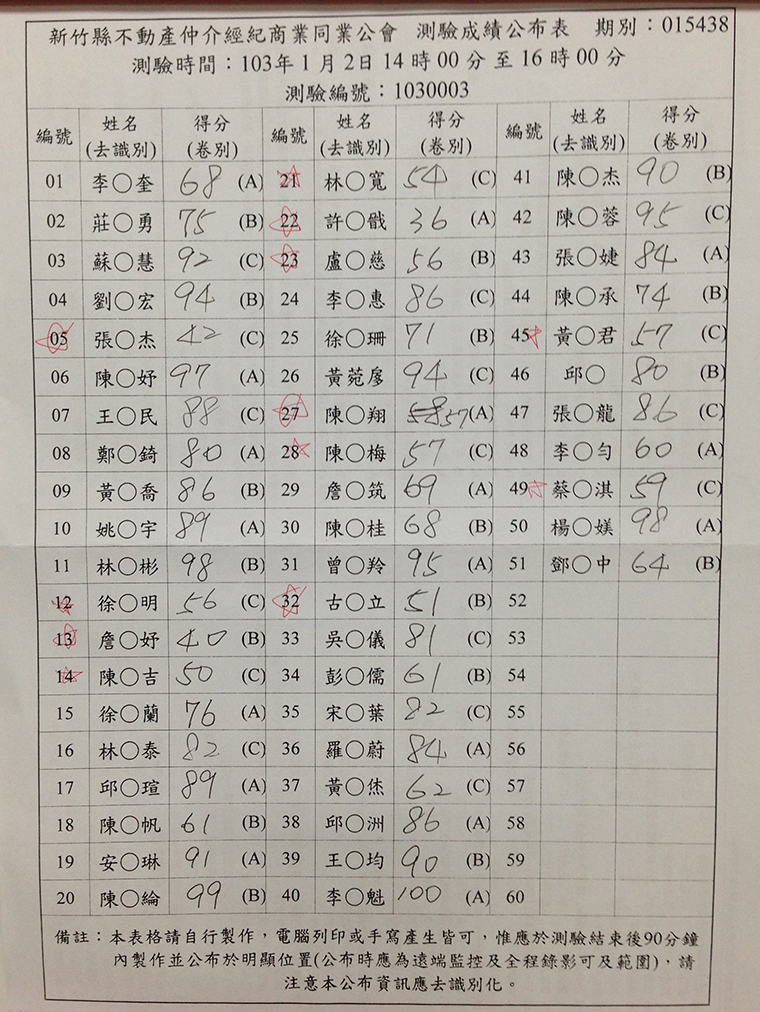 新竹縣不動產仲介經紀商業同業公會 測驗成績公布表 期別：015438
測驗時間：103年1月2日14時00分至16時00分
測驗編號：1030003
編號 姓名(去識別) 得分(卷別) 編號 姓名(去識別) 得分(卷別) 編號 姓名(去識別) 得分(卷別)
01 李○奎 68 (A) 21 林○寬 54 (C) 41 陳○杰 90 (B)
02 莊○勇 75 (B) 22 許○戩 36 (A) 42 陳○蓉 95 (C)
03 蘇○慧 92 (C) 23 盧○慈 56 (B) 43 張○婕 84 (A)
04 劉○宏 94 (B) 24 李○惠 86 (C) 44 陳○承 74 (B)
05 張○杰 42 (C) 25 徐○珊 71 (B) 45 黃○君 57 (C)
06 陳○妤 97 (A) 26 黃菀 94 (C) 46 邱○ 80 (B)
07 王○民 88 (C) 27 陳○翔 57 (A) 47 張○龍 86 (C)
08 鄭○錡 80 (A) 28 陳○梅 57 (C) 48 李○勻 60 (A)
09 黃○喬 86 (B) 29 詹○筑 69 (A) 49 蔡○淇 59 (C)
10 姚○宇 89 (A) 30 陳○桂 68 (B) 50 楊○媄 98 (A)
11 林○彬 98 (B) 31 曾○羚 95 (A) 51 鄧○中 64 (B)
12 徐○明 56 (C) 32 古○立 51 (B) 52
13 詹○妤 40 (B) 33 吳○儀 81 (C) 53
14 陳○吉 50 (C) 34 彭○儒 61 (B) 54
15 徐○蘭 76 (A) 35 宋○葉 82 (C) 55
16 林○泰 82 (C) 36 羅○蔚 84 (A) 56
17 邱○瑄 89 (A) 37 黃○ 62 (C) 57
18 陳○帆 61 (B) 38 邱○洲 86 (A) 58
19 安○琳 91 (A) 39 王○均 90 (B) 59
20 陳○綸 99 (B) 40 李○魁 100 (A) 60
備註：本表格請自行製作，電腦列印或手寫產生皆可，惟應於測驗結束後90分鐘
內製作並公布於明顯位置(公布時應為遠端監控及全程錄影可及範圍)，請
注意本公布資訊應去識別化。